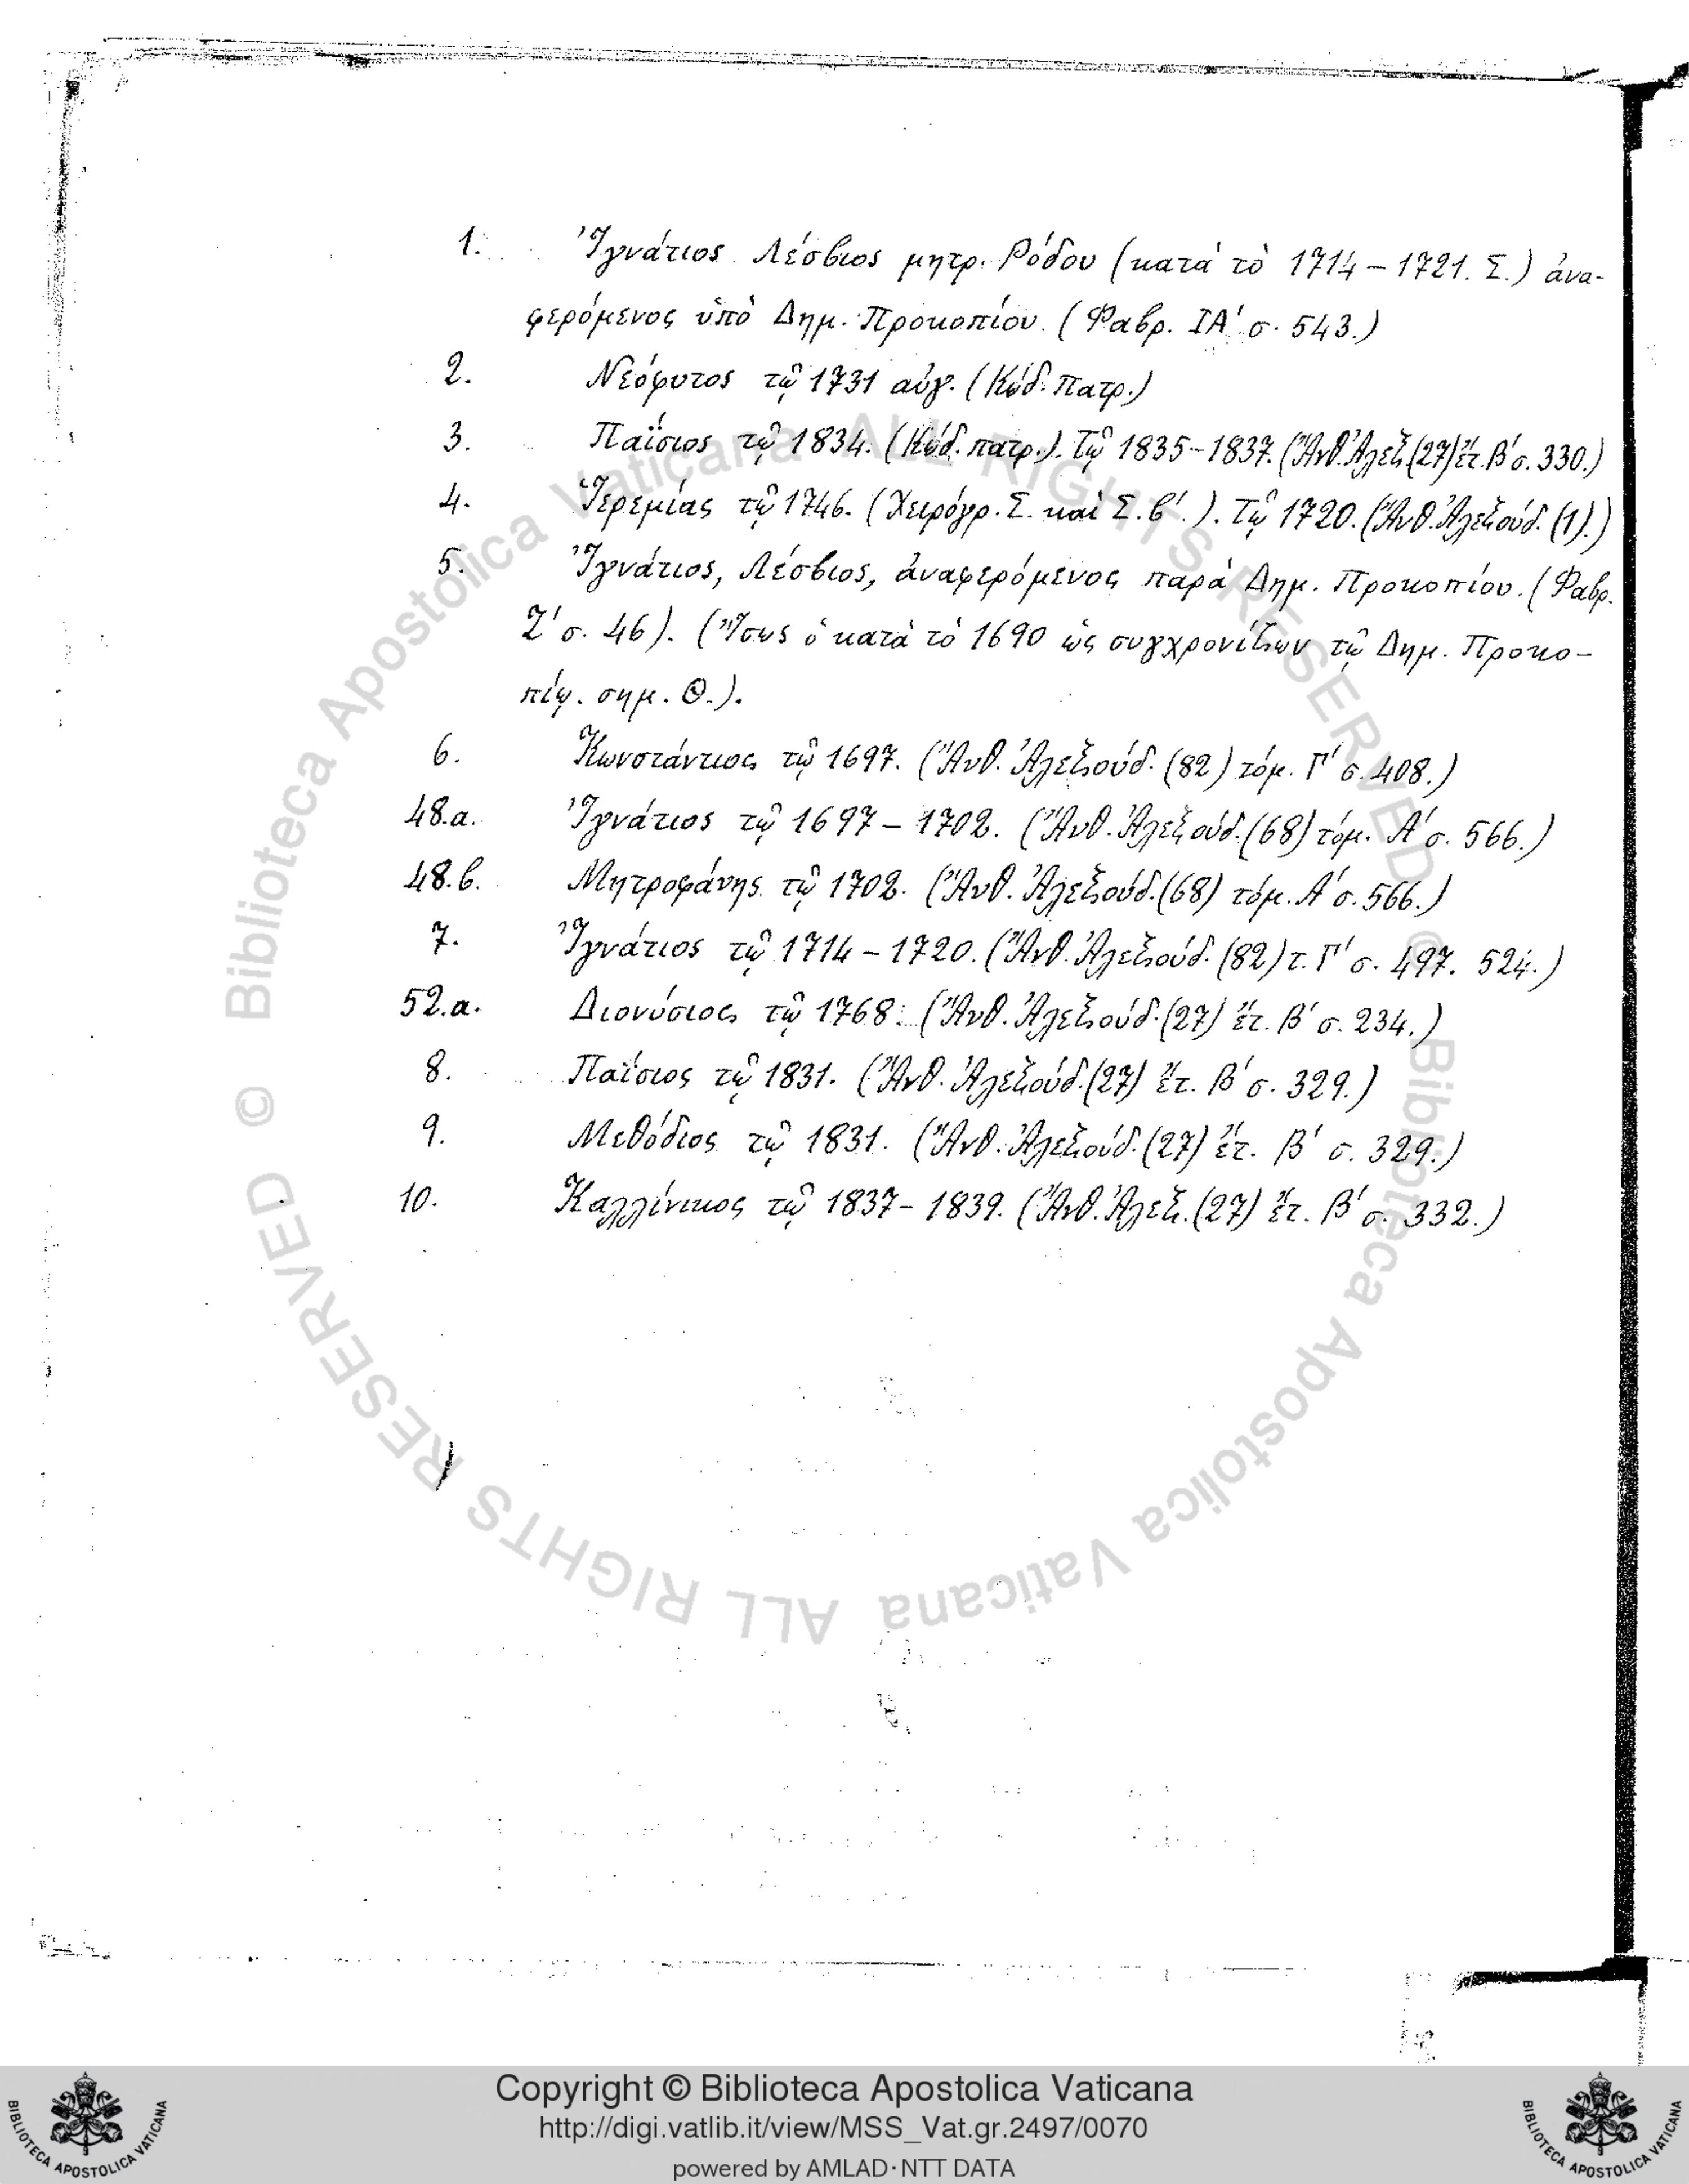 1. Ἰγνάτιος Λέσβιος μητρ. Ρόδου (κατὰ τὸ 1714 – 1721. Σ.) ἀνα-
φερόμενος ὑπὸ Δημ. Προκοπίου. (Φαβρ. ΙΑ' σ. 543.)
2. Νεόφυτος τῷ 1731 αὐγ. (Κώδ. Πατρ.)
3. Παΐσιος τῷ 1834. (Κώδ. πατρ.). Τῷ 1835–1837. (Ἄνθ. Ἀλεξ. (27) ἔτ. Β' σ. 330.)
4. Ἱερεμίας τῷ 1746. (Χειρόγρ. Σ. καὶ Σ. β'.). Τῷ 1720. (Ἄνθ. Ἀλεξούδ. (1).)
5. Ἰγνάτιος, Λέσβιος, ἀναφερόμενος παρὰ Δημ. Προκοπίου. (Φαβρ.
Ζ' σ. 46). (Ἴσως ὁ κατὰ τὸ 1690 ὡς συγχρονίζων τῷ Δημ. Προκο-
πίῳ. σημ. Θ.).
6. Κωνστάντιος τῷ 1697. (Ἄνθ. Ἀλεξούδ. (82) τόμ. Γ' σ. 408.)
48.α. Ἰγνάτιος τῷ 1697 – 1702. (Ἄνθ. Ἀλεξούδ. (68) τόμ. Α' σ. 566.)
48.β. Μητροφάνης τῷ 1702. (Ἄνθ. Ἀλεξούδ. (68) τόμ. Α' σ. 566.)
7. Ἰγνάτιος τῷ 1714 – 1720. (Ἄνθ. Ἀλεξούδ. (82) τ. Γ' σ. 497. 524.)
52.α. Διονύσιος τῷ 1768. (Ἄνθ. Ἀλεξούδ. (27) ἔτ. Β' σ. 234.)
8. Παΐσιος τῷ 1831. (Ἄνθ. Ἀλεξούδ. (27) ἔτ. Β' σ. 329.)
9. Μεθόδιος τῷ 1831. (Ἄνθ. Ἀλεξούδ. (27) ἔτ. Β' σ. 329.)
10. Καλλίνικος τῷ 1837 – 1839. (Ἄνθ. Ἀλεξ. (27) ἔτ. Β' σ. 332.)
© Biblioteca Apostolica Vaticana ALL RIGHTS RESERVED © Biblioteca Apostolica Vaticana ALL RIGHTS RESERVED
Copyright © Biblioteca Apostolica Vaticana
http://digi.vatlib.it/view/MSS_Vat.gr.2497/0070
powered by AMLAD·NTT DATA
BIBLIOTECA APOSTOLICA VATICANA
BIBLIOTECA APOSTOLICA VATICANA